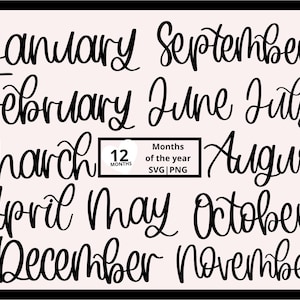 January Septembe
February June July
march
12
MONTHS
Months
of the year
SVG|PNG
Augus
April may October
December november